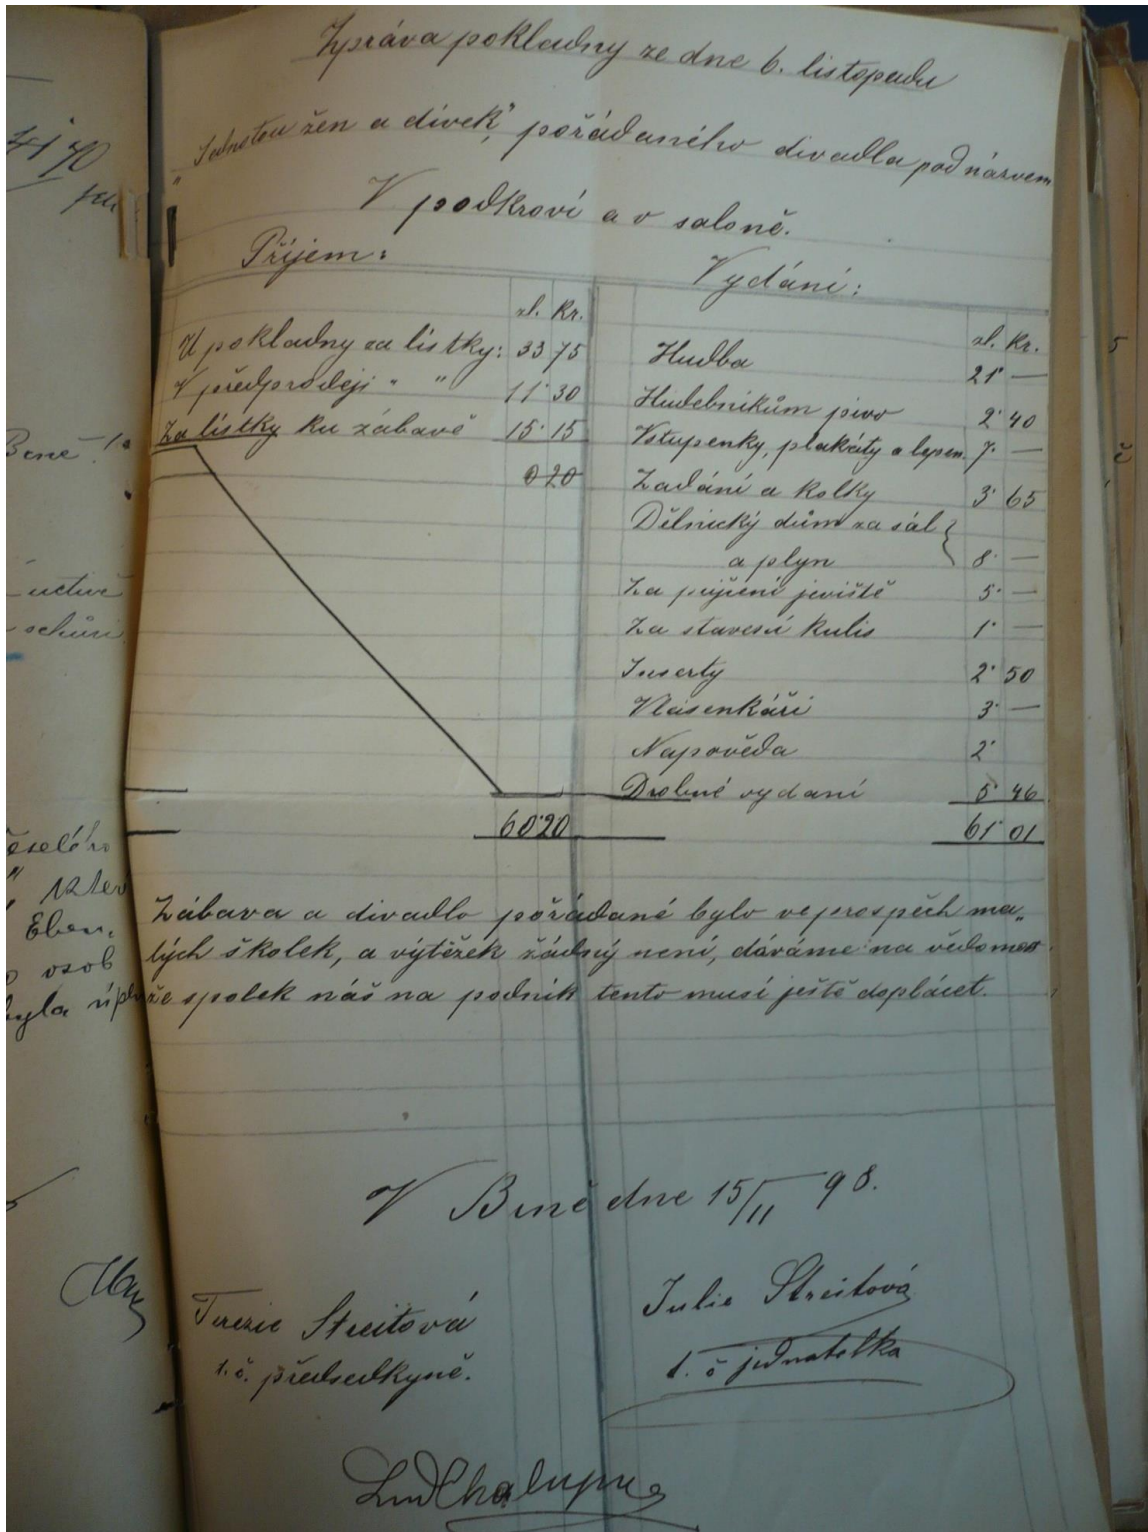 Zpráva pokladny ze dne 6. listopadu
"Jednotou žen a dívek" pořádaného divadla pod názvem
V podkroví a v saloně.
Příjem:
zl. Kr.
U pokladny za lístky: 33 75
V předprodeji " " 11 30
Za lístky ku zábavě 15 15
0 20
60 20
Vydání:
zl. Kr.
Hudba 21 —
Hudebníkům pivo 2 40
Vstupenky, plakáty a lepen. 7 —
Zadání a kolky 3 65
Dělnický dům za sál
a plyn 8 —
Za půjčení jeviště 5 —
Za stavení kulis 1 —
Inserty 2 50
Vlásenkáři 3 —
Napověda 2
Drobné vydaní 5 46
61 01
Zábava a divadlo pořádané bylo ve prospěch ma„
lých školek, a výtěžek žádný není, dáváme na vědomost
že spolek náš na podnik tento musí ještě doplácet.
V Brně dne 15/11 98.
Terezie Streitová
t. č. předsedkyně.
Julie Streitová
t. č jednatelka
4 70
Brně
uctivě
eselého
Eben.
osob
byla